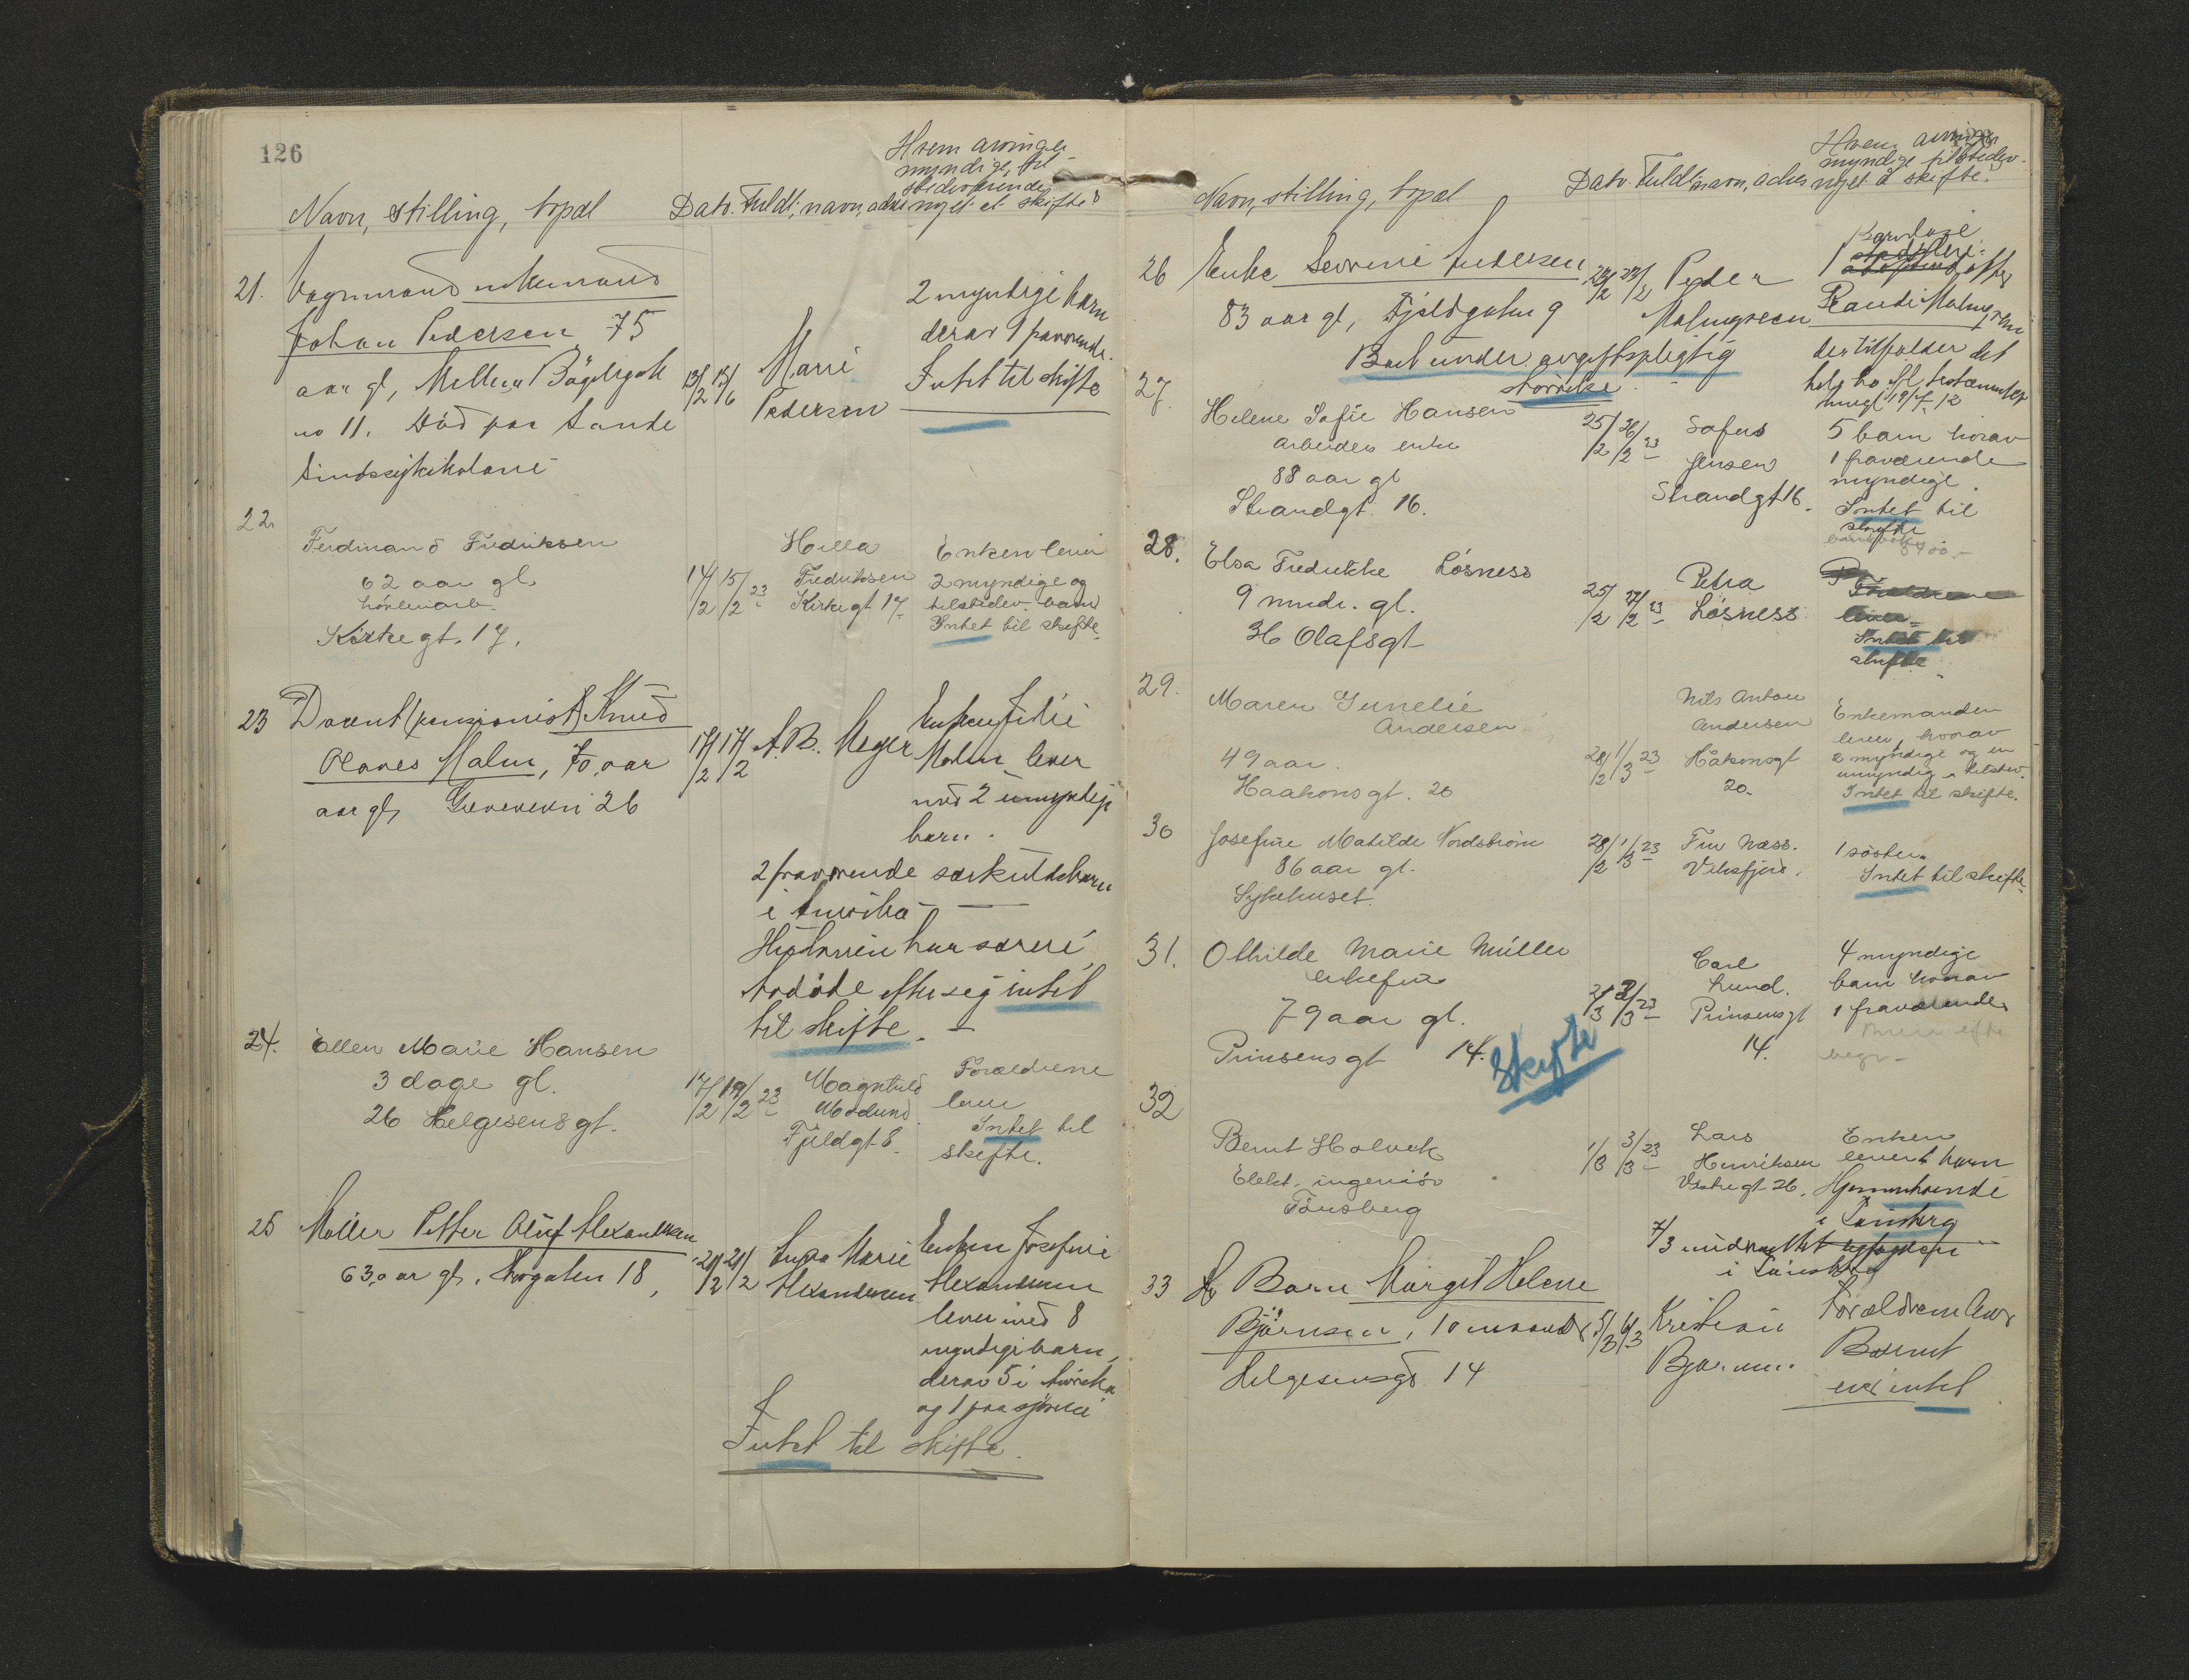 126
Hvem arvinger
myndige, til-
stedeværende
Navn, stilling, bopæl Dato. Fuldt, navn, adr. noget at skifte?
21. Vognmand enkemand 2 myndige barn
Johan Pedersen 75 derav 1 fraværende.
aar gl, Mellem Bøgeligate 13/2 13/6 Marie Intet til skifte
no 11. Død paa Sande Pedersen
Sindssykekoloni
22.
Ferdinand Fredriksen Hilla Enken lever
62 aar gl. 14/2 15/2 23 Fredriksen 2 myndige og
Kirkegt 17 tilstedev. barn
Kirkegt. 17. Intet til skifte
23 Docent (pensionist) Knud Enken Julie
Olaves Malm, 70 aar 17/2 17/2 A.B. Meyer Malm lever
aar gl, 26 med 2 umyndige
barn.
2 fraværende særkuldsbarn
i Amerika
har særeie,
Avdøde efter sig intet
til skifte.
24. Ellen Marie Hansen Forældrene
3 dage gl. 17/2 19/2 23 Magnhild lever
26 Helgesens gt. Modund Intet til
Fjeldgt 8. skifte.
25 Møller Petter Oluf Alexandersen 21/2 21/2 Inga Marie Enken Josefine
63 aar gl. Storgaten 18, Alexandersen Alexandersen
lever med 8
myndige barn,
derav 5 i Amerika
og 1 paa sjøreise
Intet til skifte.
Hvem arvinger
myndige tilstedev.
Navn, stilling, bopæl Dato. Fuldt navn, adres noget å skifte.
26 Enke Severine Andersen Peder 1
83 aar gl, Fjeldgaten 9 Malmgreen Randi Malmgreen
Boet under avgiftspligtig der tilfalder det
størrelse hele ifl. testamente
27. 19/7 12
Helene Sofie Hansen 25/2 26/2 23 Sofus 5 barn hvorav
Arbeider enke Jensen 1 fraværende
88 aar gl Strandgt 16. myndige.
Strandgt. 16. Intet til
skifte
28. Elsa Fredrikke Løsness
9 mndr. gl. 25/2 27/2 23 Petra Forældrene
36 Olafsgt Løsness lever
Intet til
skifte
29. Maren Gunelie Nils Anton
Andersen Andersen Enkemanden
49 aar. 28/2 1/3 23 Håkonsgt lever, hvorav
Haakons gt. 20 20 2 myndige og en
umyndig tilstev.
Intet til skifte.
30 Josefine Matilde Nordstrøm 28/2 1/3 23 Fru Næss. 1 søster.
86 aar gl. Viksfjord. Intet til skifte.
Sykehuset.
31. Othilde Marie Müller Carl 4 myndige
enkefru Lund. barn hvorav
79 aar gl. 2/3 3/3 23 Prinsensgt 1 fraværende
Prinsens gt 14. 14.
Skifte
32
Bernt Holvek 1/3 3/3 23 Lars Enken
Elekt. ingeniør Henriksen lever 1 barn
Tønsberg Vestregt 26. Hjemmehørende
i Tønsberg
7/3
i Tønsberg
33 Barn Margit Helene
Bjørnsen, 10 maaneder 5/3 6/3 Kristian Forældrene lever
Helgesensgt 14 Bjørnsen Barnet
eier intet